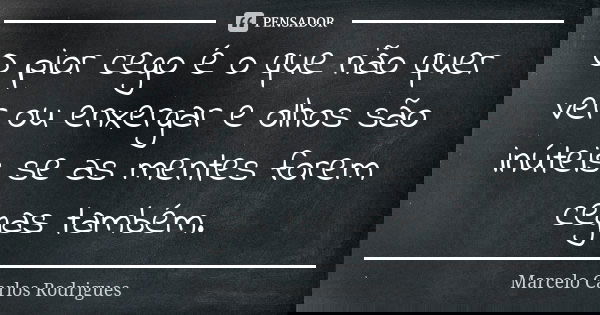 PENSADOR
O pior cego é o que não quer
ver ou enxergar e olhos são
inúteis se as mentes forem
cegas também.
Marcelo Carlos Rodrigues